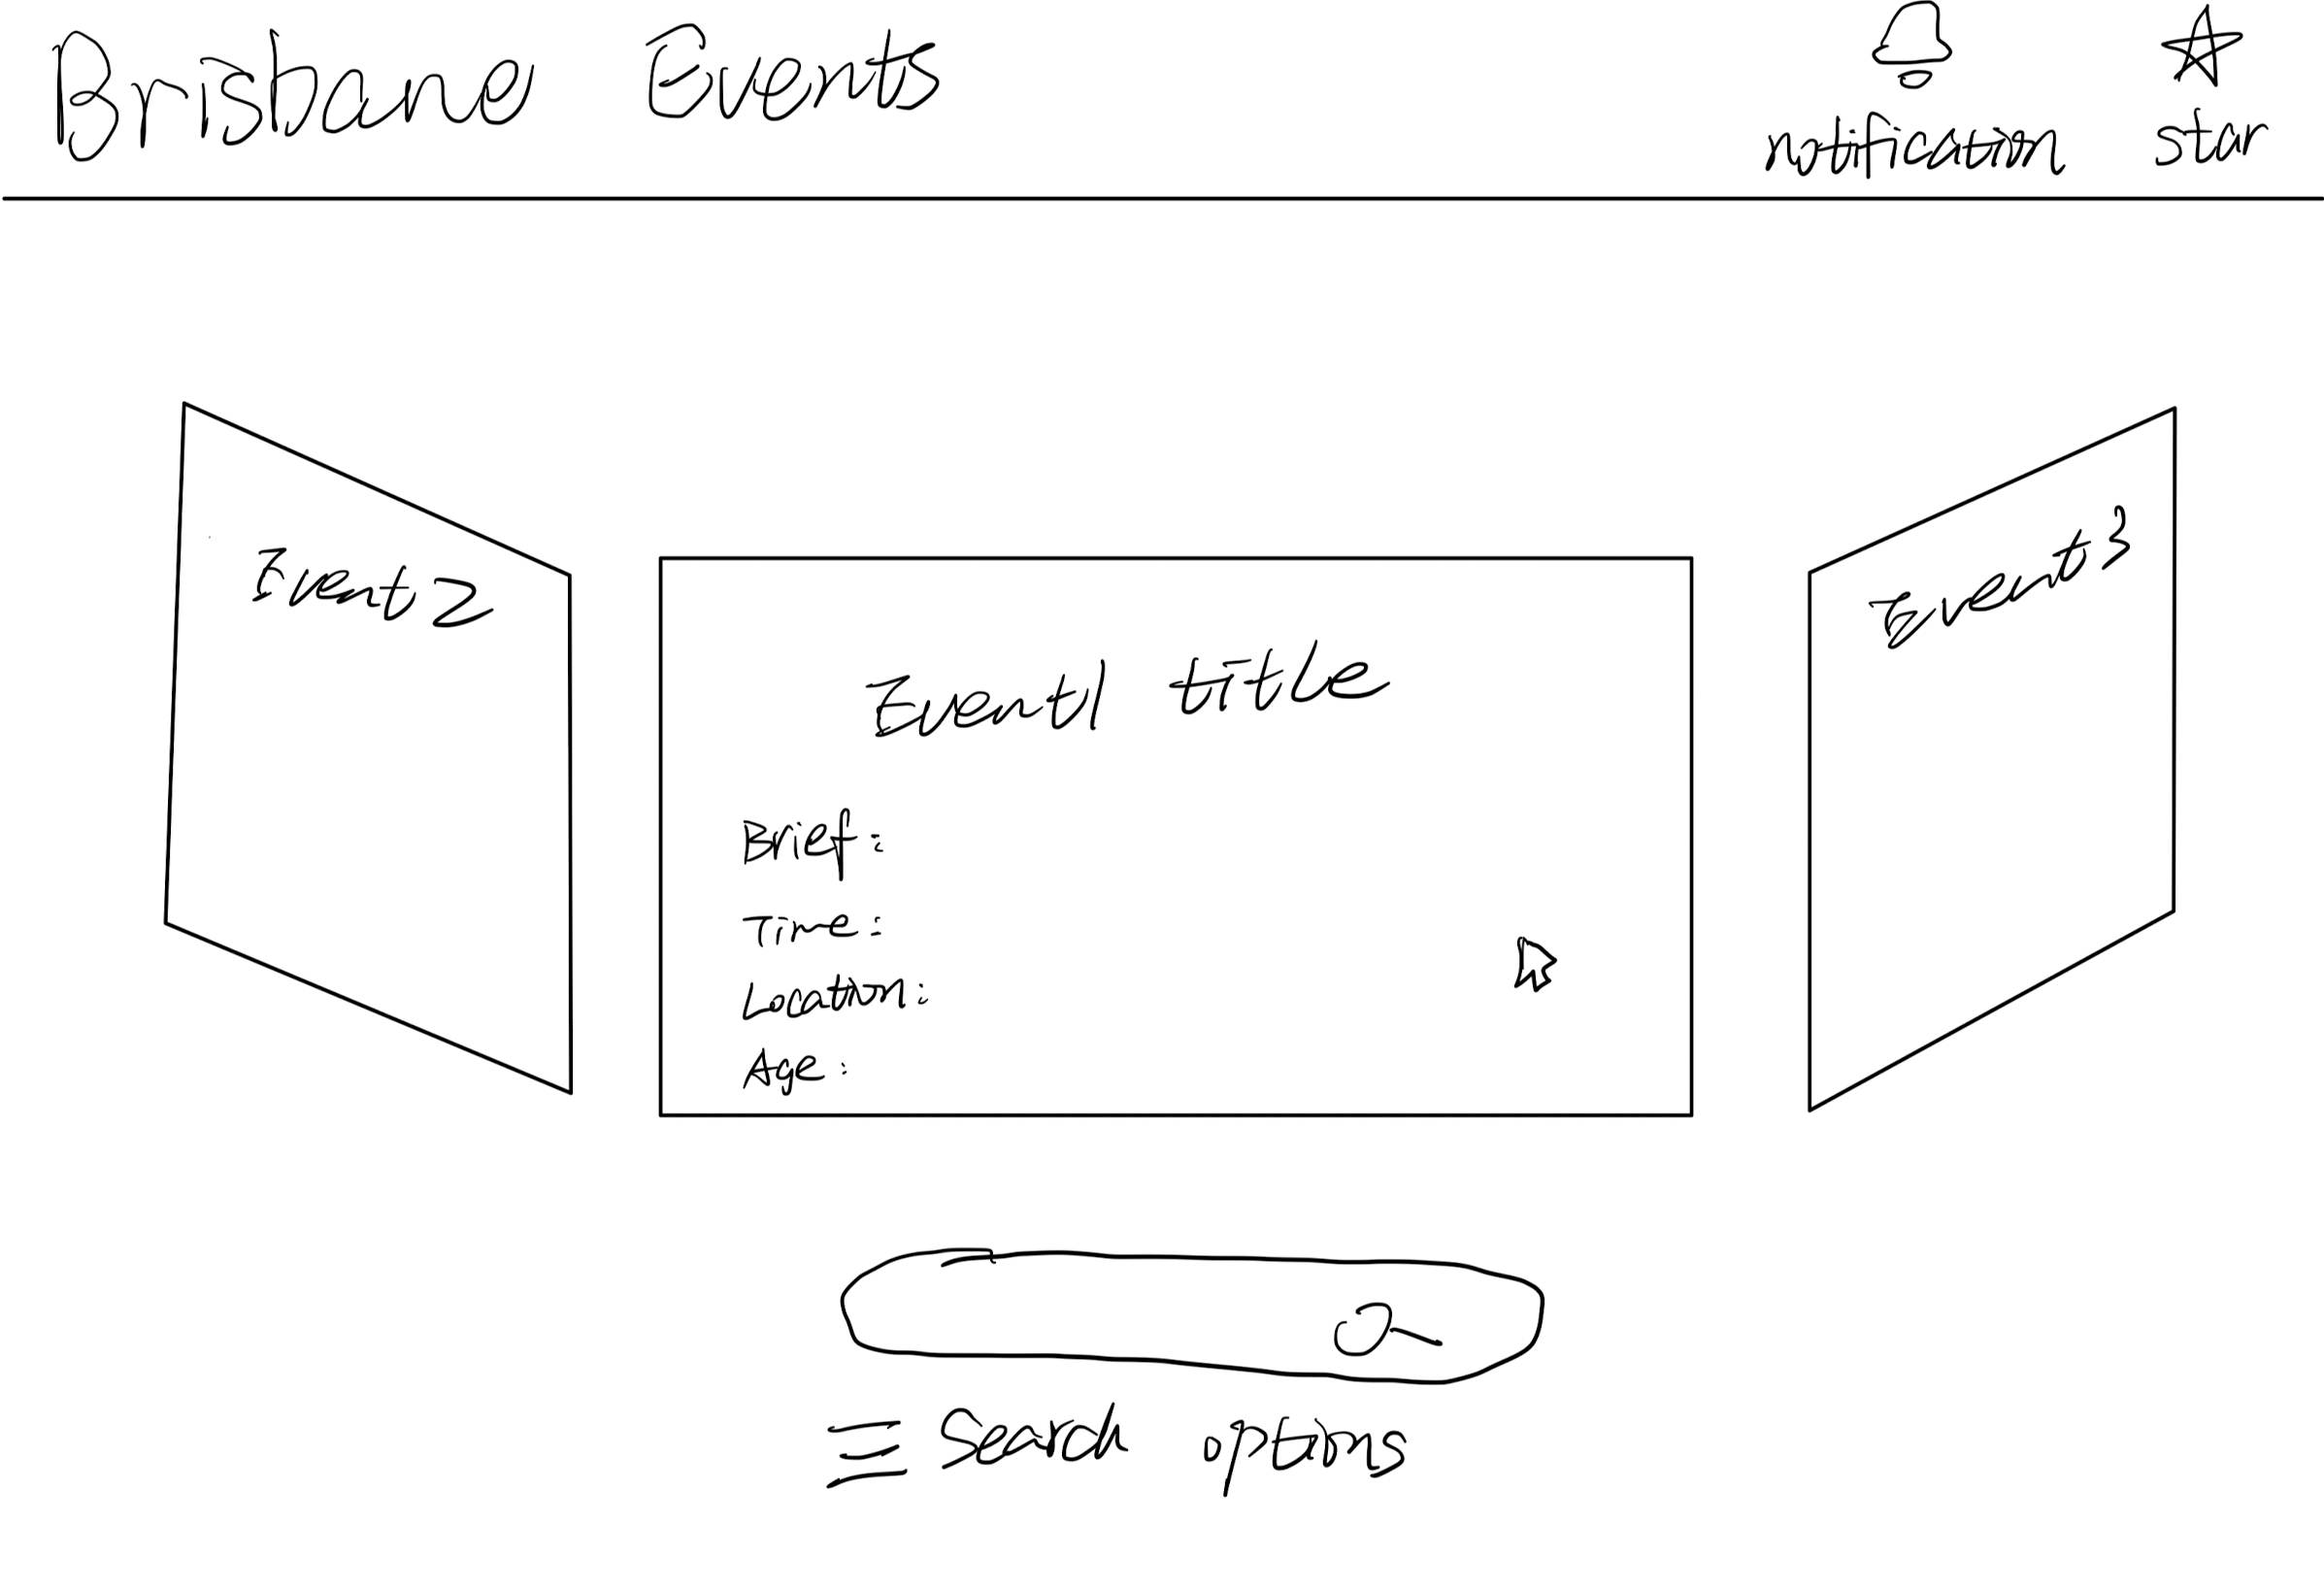 Brisbane Events
notification star
Event 2
Event 3
Event1 title
Brief:
Time:
Location:
Age:
Search options